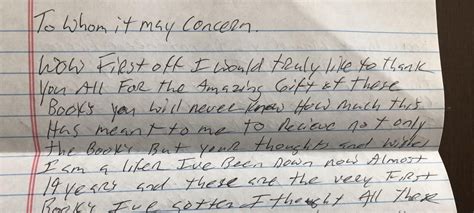 To Whom it may Concern.
WOW First off I would truly like to thank
you All For the Amazing Gift of these
Books you will never know How much this
Has meant to me to Recieve not only
the Books But your thoughts and wishes
I am a lifer I've Been Down now Almost
19 years and these are the very First
Books I've gotten I thought All these